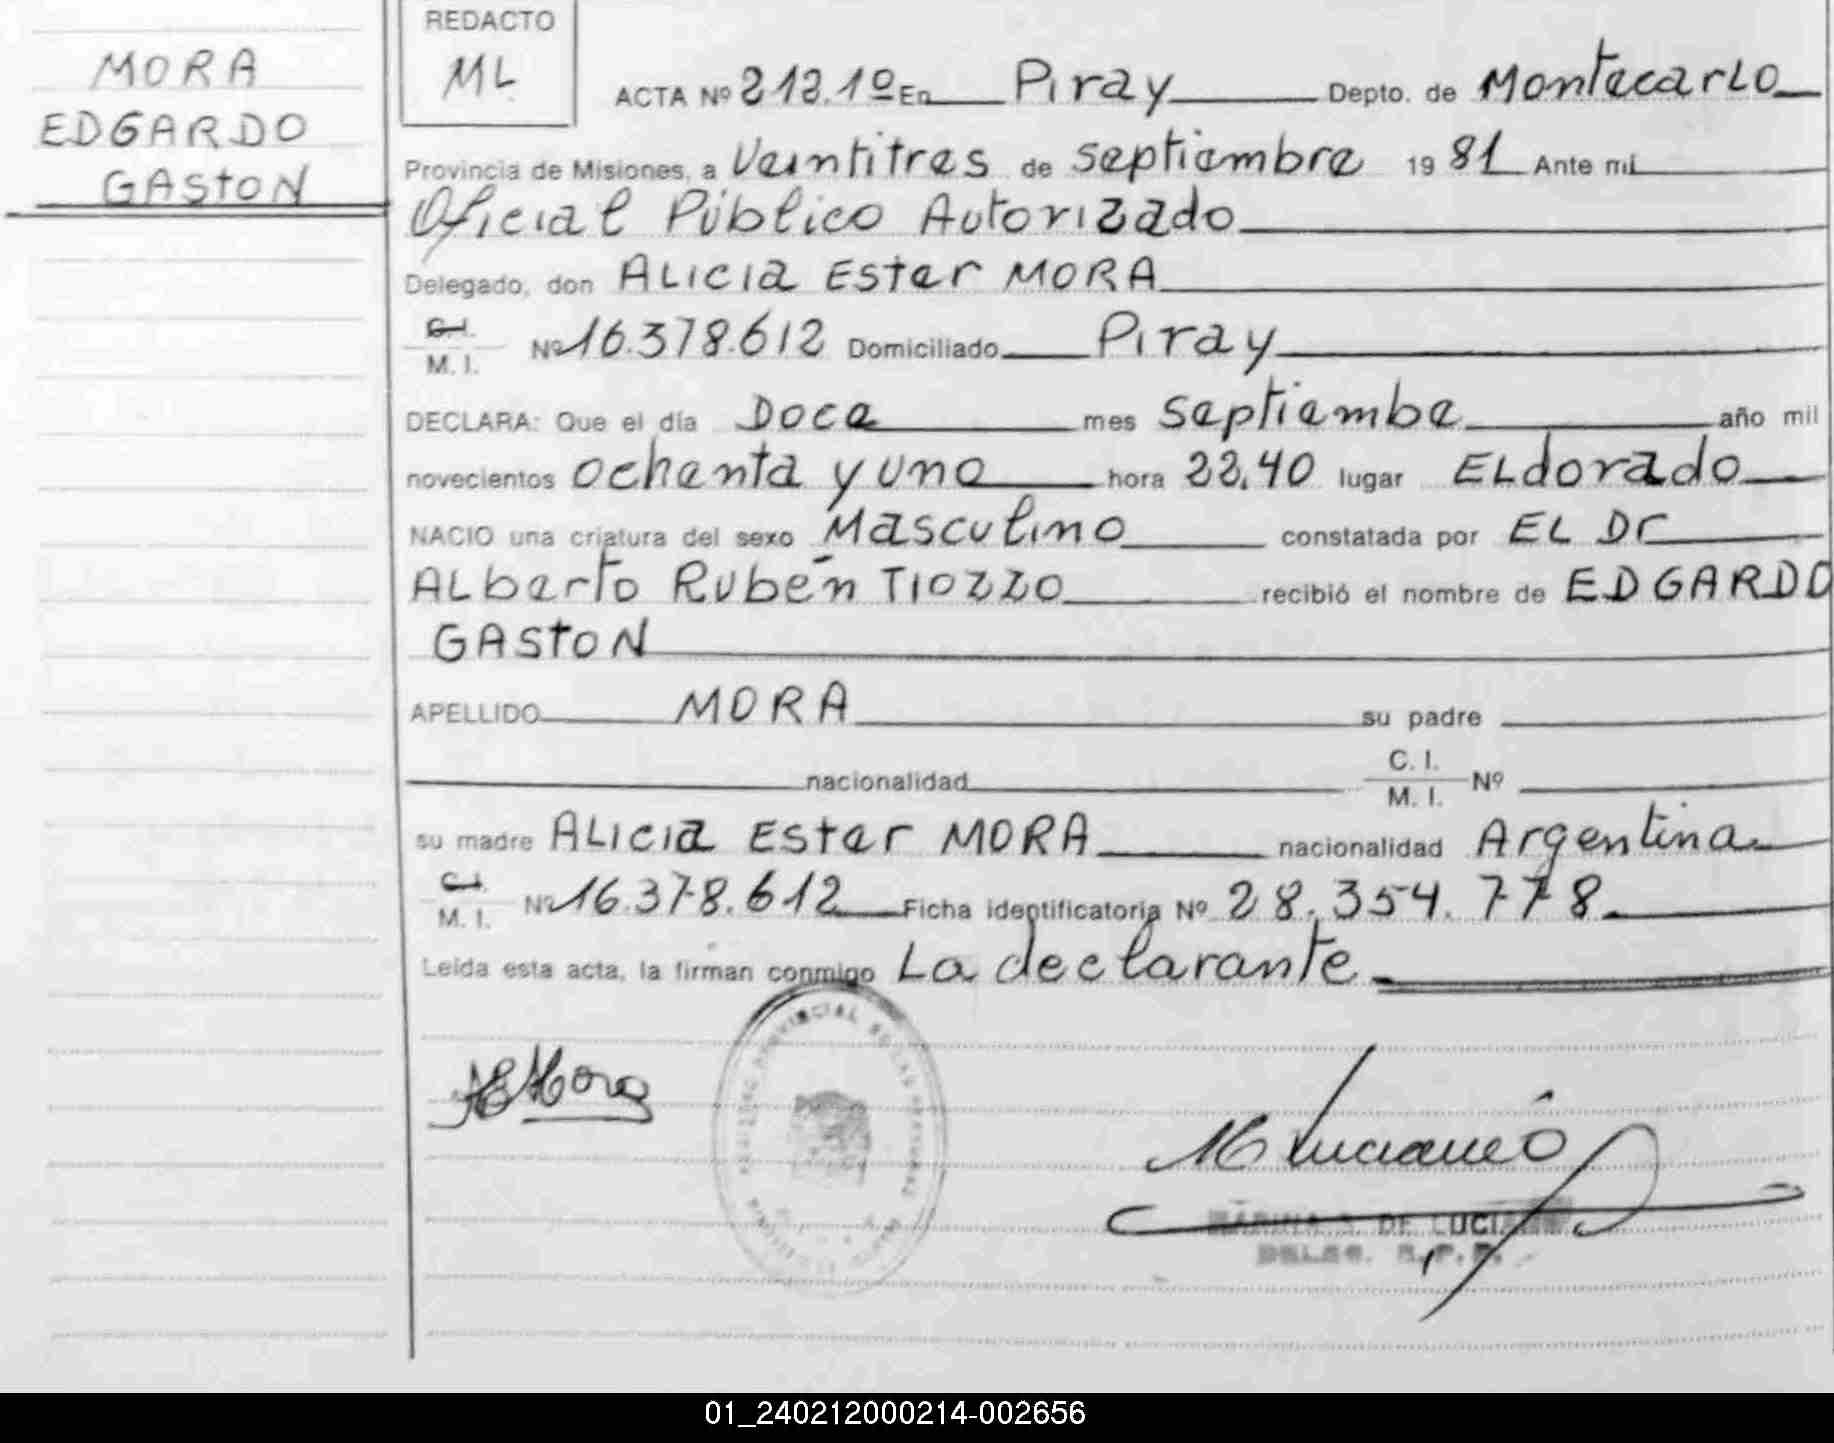 MORA
EDGARDO
GASTON
REDACTO
ML
ACTA Nº 212.1º En Piray Depto. de Montecarlo
Provincia de Misiones, a Veintitres de septiembre 19 81 Ante mi
Oficial Público Autorizado
Delegado, don ALICIA Ester MORA
C.I.
M. I. Nº 16.378.612 Domiciliado Piray
DECLARA: Que el día Doce mes septiembe año mil
novecientos ochenta y uno hora 22,40 lugar ELdorado
NACIO una criatura del sexo Masculino constatada por EL Dr
ALberto Rubén TIOZZO recibió el nombre de EDGARDO
GASTON
APELLIDO MORA su padre
nacionalidad C. I.
M. I. Nº
su madre ALICIA Ester MORA nacionalidad Argentina
C.I.
M. I. Nº 16.378.612 Ficha identificatoria Nº 28.354.778
Leída esta acta, la firman conmigo La declarante
AEMora
DE LUCIANO
01_240212000214-002656